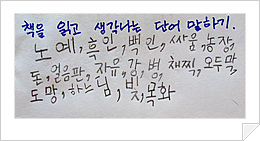 책을 읽고 생각나는 단어 말하기.
노예, 흑인, 백인, 싸움, 농장,
돈, 얼음판, 자유, 강, 병, 채찍, 오두막,
도망, 하느님, 빚, 목화